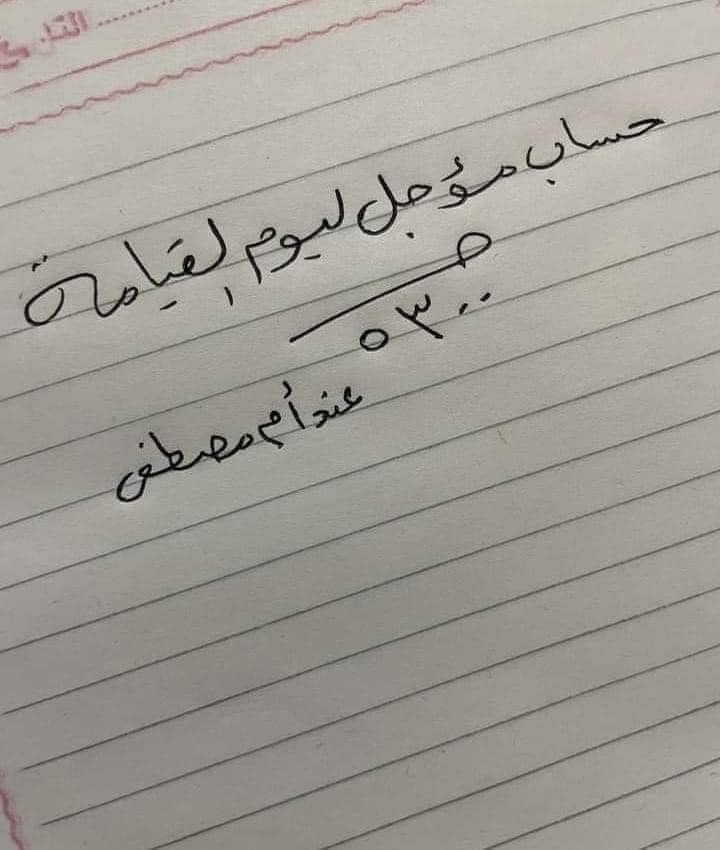 التاريخ ..........
حساب مؤجل ليوم القيامة
٥٣٠٠
عند أم مصطفى